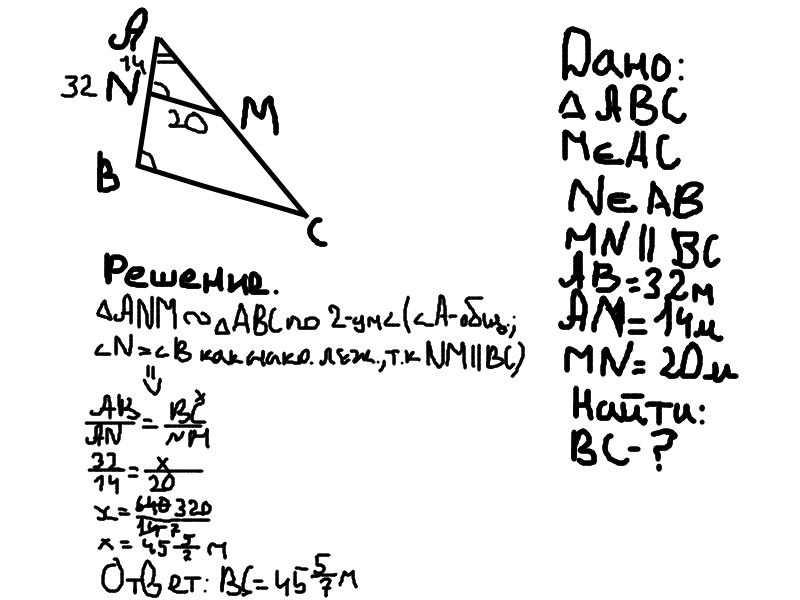 A
14
32 N
M
20
B
C
Дано:
△ABC
M∈AC
N∈AB
MN || BC
AB=32м
AN=14м
MN=20м
Найти:
BC-?
Решение.
△ANM ∾ △ABC по 2-ум∠(∠A-общ.;
∠N=∠B как накр. леж., т.к NM||BC)
⇓
AB/AN = BC/NM x
32/14 = x/20
x = 640 320/14 7
x = 45 5/7 м
Ответ: BC=45 5/7 м